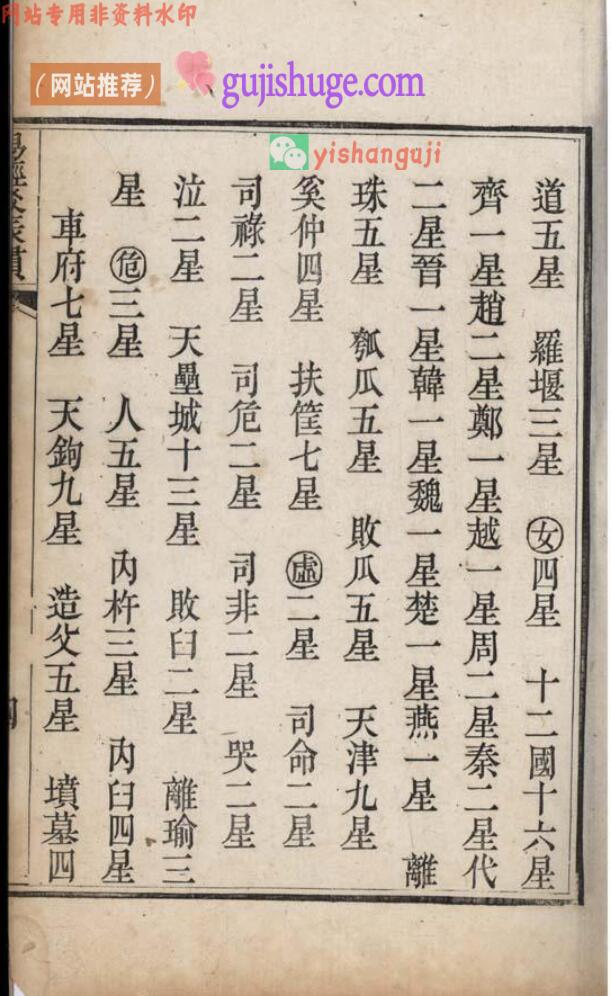 网站专用非资料水印
(网站推荐)
gujishuge.com
yishanguji
道五星 羅堰三星 女四星 十二國十六星
齊一星趙二星鄭一星越一星周二星秦二星代
二星晉一星韓一星魏一星楚一星燕一星 離
珠五星 瓠瓜五星 敗瓜五星 天津九星
奚仲四星 扶筐七星 虛二星 司命二星
司祿二星 司危二星 司非二星 哭二星
泣二星 天壘城十三星 敗臼二星 離瑜三
星 危三星 人五星 內杵三星 內臼四星
車府七星 天鉤九星 造父五星 墳墓四